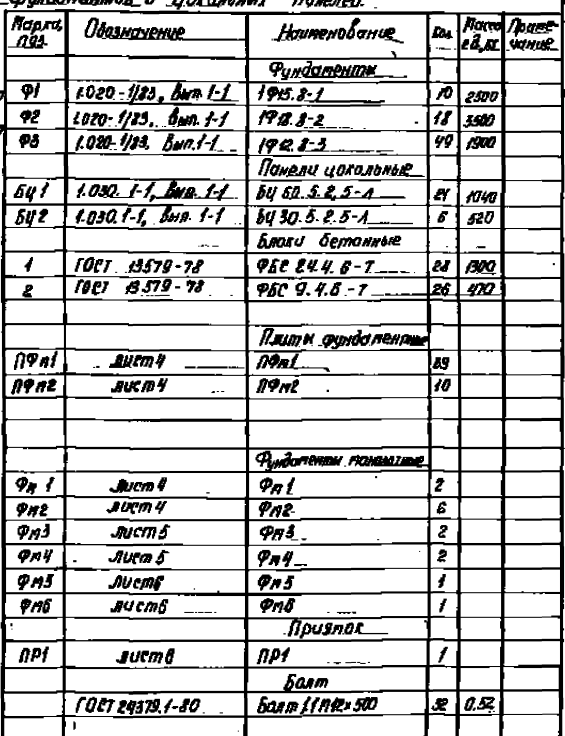 фундаментов и цокольных панелей.
Марка, поз. Обозначение Наименование Кол. Масса ед, кг Приме-чание
Фундаменты
Ф1 1.020-1/83, Вып. 1-1 1Ф15.8-1 10 2500
Ф2 1.020-1/83, Вып. 1-1 1Ф18.8-2 18 3500
Ф3 1.020-1/83, Вып. 1-1 1Ф12.8-3 49 1900
Панели цокольные
БЦ 1 1.030.1-1, Вып. 1-1 БЦ 60.5.2,5-Л 21 1040
БЦ 2 1.030.1-1, Вып. 1-1 БЦ 30.5.2.5-Л 6 520
Блоки бетонные
1 ГОСТ 13579-78 ФБС 24.4.6-Т 28 1300
2 ГОСТ 13579-78 ФБС 9.4.6-Т 26 470
Плиты фундаментные
ПФм1 лист 4 ПФм1 89
ПФм2 лист 4 ПФм2 10
Фундаменты монолитные
Фм 1 лист 4 Фм 1 2
Фм2 лист 4 Фм2 6
Фм3 лист 5 Фм3 2
Фм4 лист 5 Фм4 2
Фм5 лист 6 Фм5 1
Фм6 лист 6 Фм6 1
Приямок
ПР1 лист 6 ПР1 1
Болт
ГОСТ 24379.1-80 Болт 1.1 М12х500 32 0.52